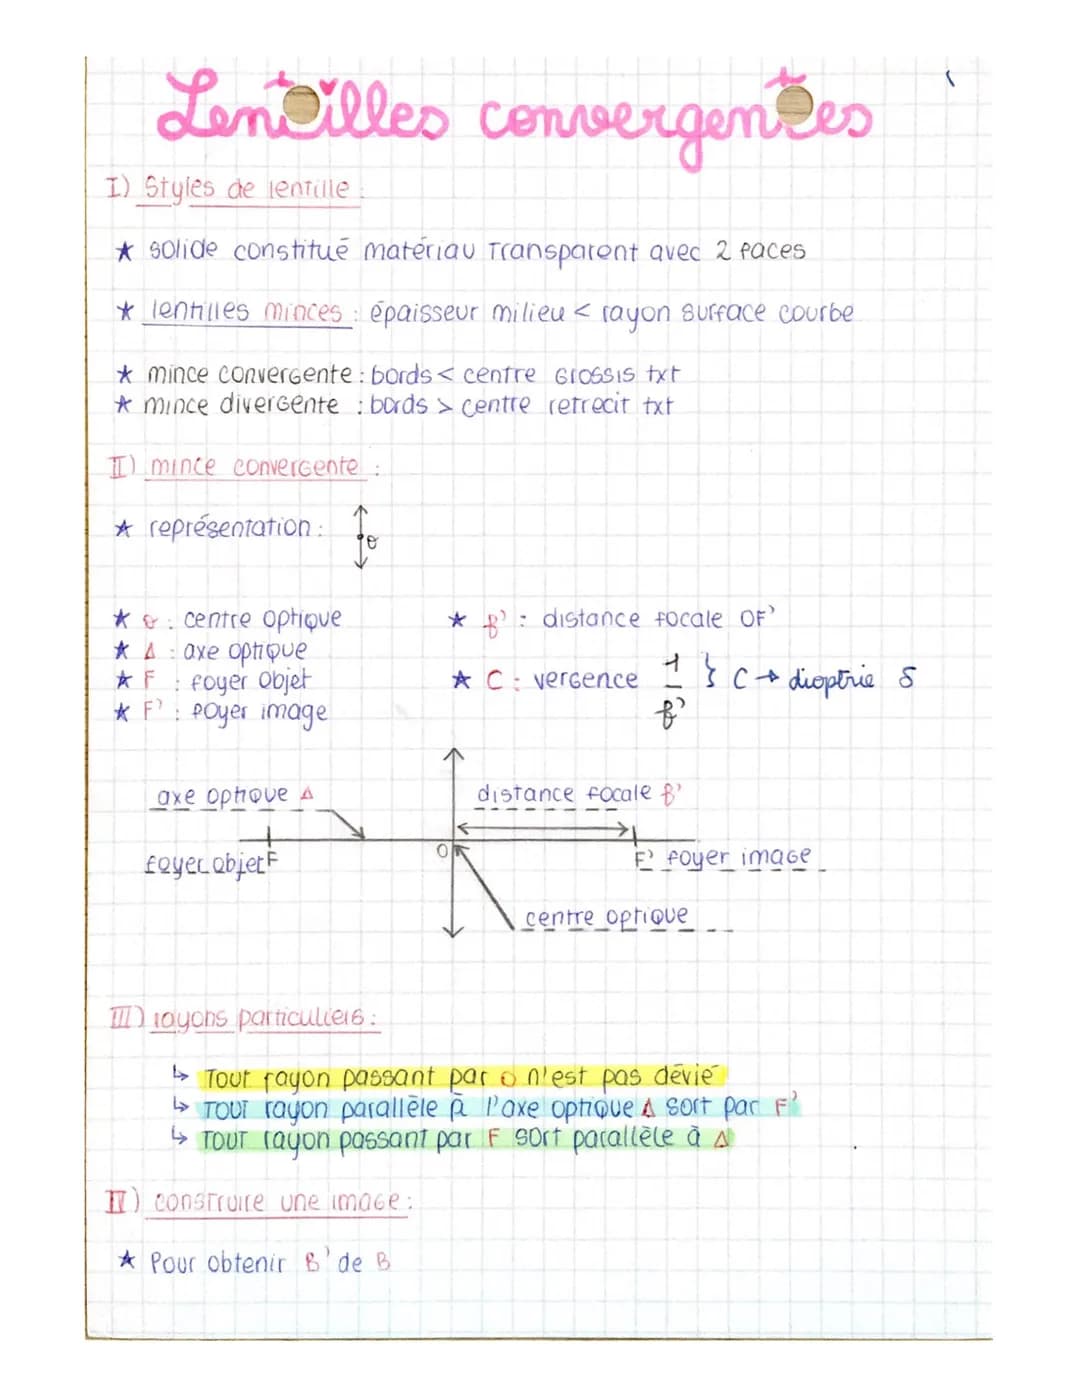 Lentilles convergentes
I) Styles de lentille :
★ solide constitué matériau Transparent avec 2 faces
★ lentilles minces : épaisseur milieu < rayon surface courbe
★ mince convergente : bords < centre Grossis txt
★ mince divergente : bords > centre retrecit txt
II) mince convergente :
★ représentation : O
★ O : centre optique
★ Δ : axe optique
★ F : foyer objet
★ F' : foyer image
★ f' : distance focale OF'
★ C : vergence 1/f' } C → dioptrie δ
axe optique Δ
distance focale f'
foyer objet F
O
F' foyer image
centre optique
III) rayons particuliers :
↳ Tout rayon passant par O n'est pas dévié
↳ Tout rayon parallèle à l'axe optique Δ sort par F'
↳ Tout rayon passant par F sort parallèle à Δ
IV) construire une image :
★ Pour obtenir B' de B